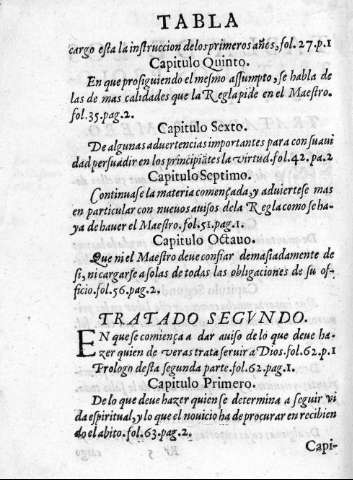 TABLA
cargo esta la instruccion delos primeros años, fol. 27. p. 1
Capitulo Quinto.
En que prosiguiendo el mesmo assumpto, se habla de
las de mas calidades que la Regla pide en el Maestro.
fol. 35. pag. 2.
Capitulo Sexto.
De algunas aduertencias importantes para con suaui
dad persuadir en los principiãtes la virtud. fol. 42. pa. 2
Capitulo Septimo.
Continuase la materia començada, y aduiertese mas
en particular con nueuos auisos dela Regla como se ha-
ya de hauer el Maestro. fol. 51. pag. 1.
Capitulo Octauo.
Que ni el Maestro deue confiar demasiadamente de
si, ni cargarse a solas de todas las obligaciones de su of-
ficio. fol. 56. pag. 2.
TRATADO SEGVNDO.
EN que se comiença a dar auiso de lo que deue ha-
zer quien de veras trata seruir a Dios. fol. 62. p. 1
Prologo desta segunda parte. fol. 62. pag. 1.
Capitulo Primero.
De lo que deue hazer quien se determina a seguir vi
da espiritual, y lo que el nouicio ha de procurar en recibien
do el abito. fol. 63. pag. 2.
Capi-